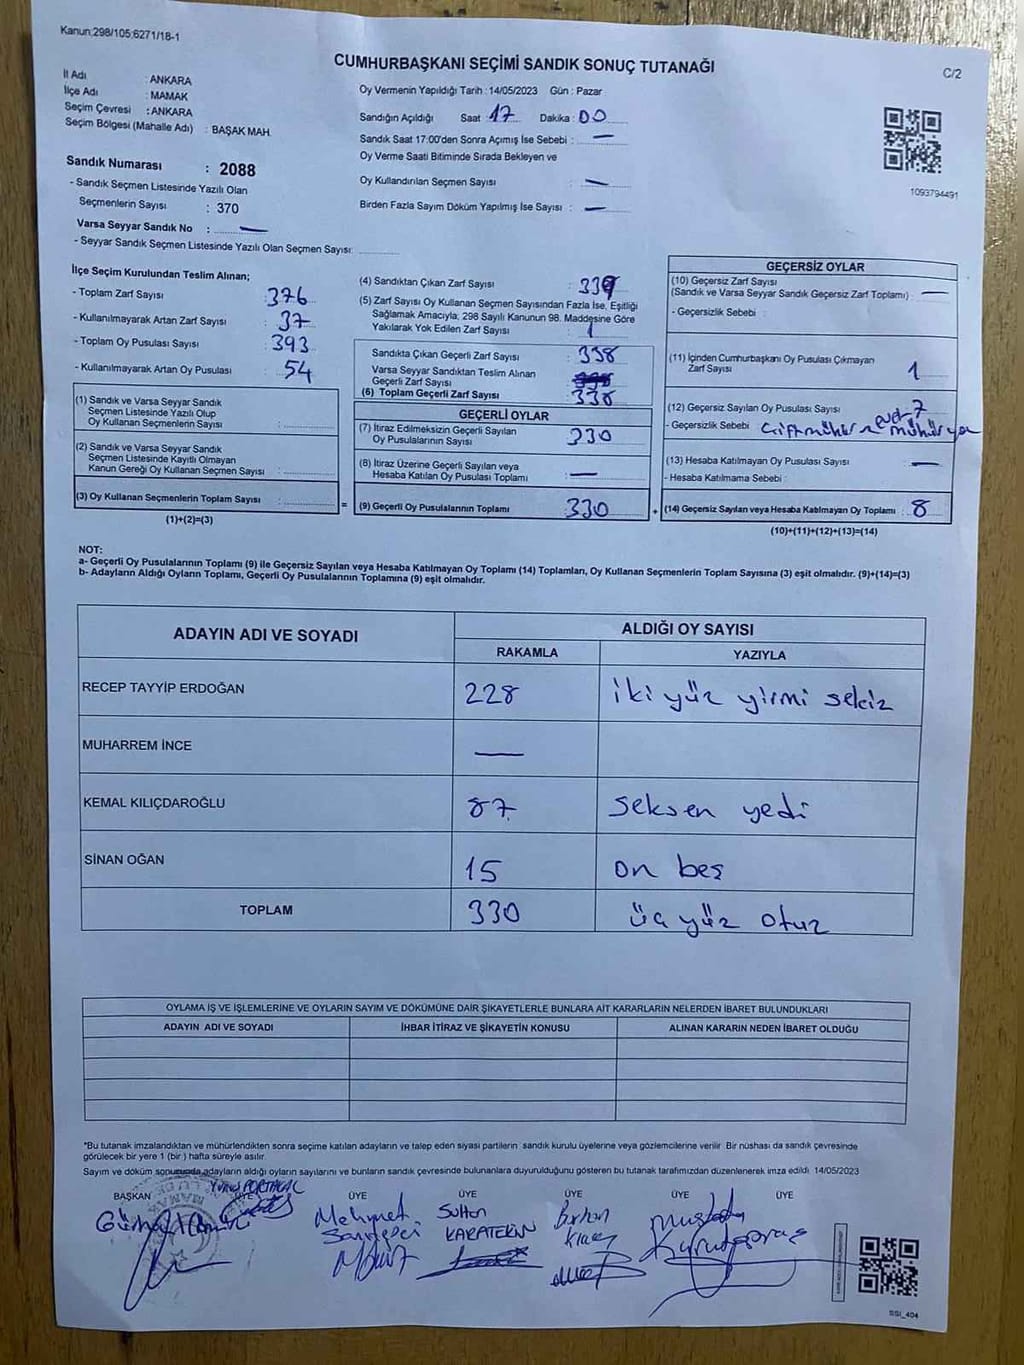 Kanun:298/105;6271/18-1
CUMHURBAŞKANI SEÇİMİ SANDIK SONUÇ TUTANAĞI
C/2
İl Adı : ANKARA
İlçe Adı : MAMAK
Seçim Çevresi : ANKARA
Seçim Bölgesi (Mahalle Adı) : BAŞAK MAH.
Sandık Numarası : 2088
- Sandık Seçmen Listesinde Yazılı Olan
Seçmenlerin Sayısı : 370
Varsa Seyyar Sandık No : —
- Seyyar Sandık Seçmen Listesinde Yazılı Olan Seçmen Sayısı:
Oy Vermenin Yapıldığı Tarih : 14/05/2023 Gün : Pazar
Sandığın Açıldığı Saat : 17 Dakika : 00
Sandık Saat 17:00'den Sonra Açımış İse Sebebi : —
Oy Verme Saati Bitiminde Sırada Bekleyen ve
Oy Kullandırılan Seçmen Sayısı : —
Birden Fazla Sayım Döküm Yapılmış İse Sayısı : —
1093794491
İlçe Seçim Kurulundan Teslim Alınan;
- Toplam Zarf Sayısı : 376
- Kullanılmayarak Artan Zarf Sayısı : 37
- Toplam Oy Pusulası Sayısı : 393
- Kullanılmayarak Artan Oy Pusulası : 54
(1) Sandık ve Varsa Seyyar Sandık
Seçmen Listesinde Yazılı Olup
Oy Kullanan Seçmenlerin Sayısı :
(2) Sandık ve Varsa Seyyar Sandık
Seçmen Listesinde Kayıtlı Olmayan
Kanun Gereği Oy Kullanan Seçmen Sayısı :
(3) Oy Kullanan Seçmenlerin Toplam Sayısı :
(1)+(2)=(3)
(4) Sandıktan Çıkan Zarf Sayısı : 339
(5) Zarf Sayısı Oy Kullanan Seçmen Sayısından Fazla İse, Eşitliği
Sağlamak Amacıyla; 298 Sayılı Kanunun 98. Maddesine Göre
Yakılarak Yok Edilen Zarf Sayısı : 1
Sandıkta Çıkan Geçerli Zarf Sayısı : 338
Varsa Seyyar Sandıktan Teslim Alınan
Geçerli Zarf Sayısı :
(6) Toplam Geçerli Zarf Sayısı : 338
GEÇERLİ OYLAR
(7) İtiraz Edilmeksizin Geçerli Sayılan
Oy Pusulalarının Sayısı : 330
(8) İtiraz Üzerine Geçerli Sayılan veya
Hesaba Katılan Oy Pusulası Toplamı : —
= (9) Geçerli Oy Pusulalarının Toplamı : 330
GEÇERSİZ OYLAR
(10) Geçersiz Zarf Sayısı
(Sandık ve Varsa Seyyar Sandık Geçersiz Zarf Toplamı) : —
- Geçersizlik Sebebi :
(11) İçinden Cumhurbaşkanı Oy Pusulası Çıkmayan
Zarf Sayısı : 1
(12) Geçersiz Sayılan Oy Pusulası Sayısı : 7
- Geçersizlik Sebebi : Çift mühür
(13) Hesaba Katılmayan Oy Pusulası Sayısı : —
- Hesaba Katılmama Sebebi :
+ (14) Geçersiz Sayılan veya Hesaba Katılmayan Oy Toplamı : 8
(10)+(11)+(12)+(13)=(14)
NOT:
a- Geçerli Oy Pusulalarının Toplamı (9) ile Geçersiz Sayılan veya Hesaba Katılmayan Oy Toplamı (14) Toplamları, Oy Kullanan Seçmenlerin Toplam Sayısına (3) eşit olmalıdır. (9)+(14)=(3)
b- Adayların Aldığı Oyların Toplamı, Geçerli Oy Pusulalarının Toplamına (9) eşit olmalıdır.
ADAYIN ADI VE SOYADI
ALDIĞI OY SAYISI
RAKAMLA YAZIYLA
RECEP TAYYİP ERDOĞAN 228 iki yüz yirmi sekiz
MUHARREM İNCE —
KEMAL KILIÇDAROĞLU 87 seksen yedi
SİNAN OĞAN 15 on beş
TOPLAM 330 üç yüz otuz
OYLAMA İŞ VE İŞLEMLERİNE VE OYLARIN SAYIM VE DÖKÜMÜNE DAİR ŞİKAYETLERLE BUNLARA AİT KARARLARIN NELERDEN İBARET BULUNDUKLARI
ADAYIN ADI VE SOYADI İHBAR İTİRAZ VE ŞİKAYETİN KONUSU ALINAN KARARIN NEDEN İBARET OLDUĞU
*Bu tutanak imzalandıktan ve mühürlendikten sonra seçime katılan adayların ve talep eden siyasi partilerin sandık kurulu üyelerine veya gözlemcilerine verilir. Bir nüshası da sandık çevresinde
görülecek bir yere 1 (bir) hafta süreyle asılır.
Sayım ve döküm sonucunda adayların aldığı oyların sayılarını ve bunların sandık çevresinde bulunanlara duyurulduğunu gösteren bu tutanak tarafımızdan düzenlenerek imza edildi. 14/05/2023
BAŞKAN ÜYE ÜYE ÜYE ÜYE ÜYE ÜYE
Yunus PORTAKAL
Mehmet
Sultan
KARATEKİN
Burhan
Mustafa
SSI_404